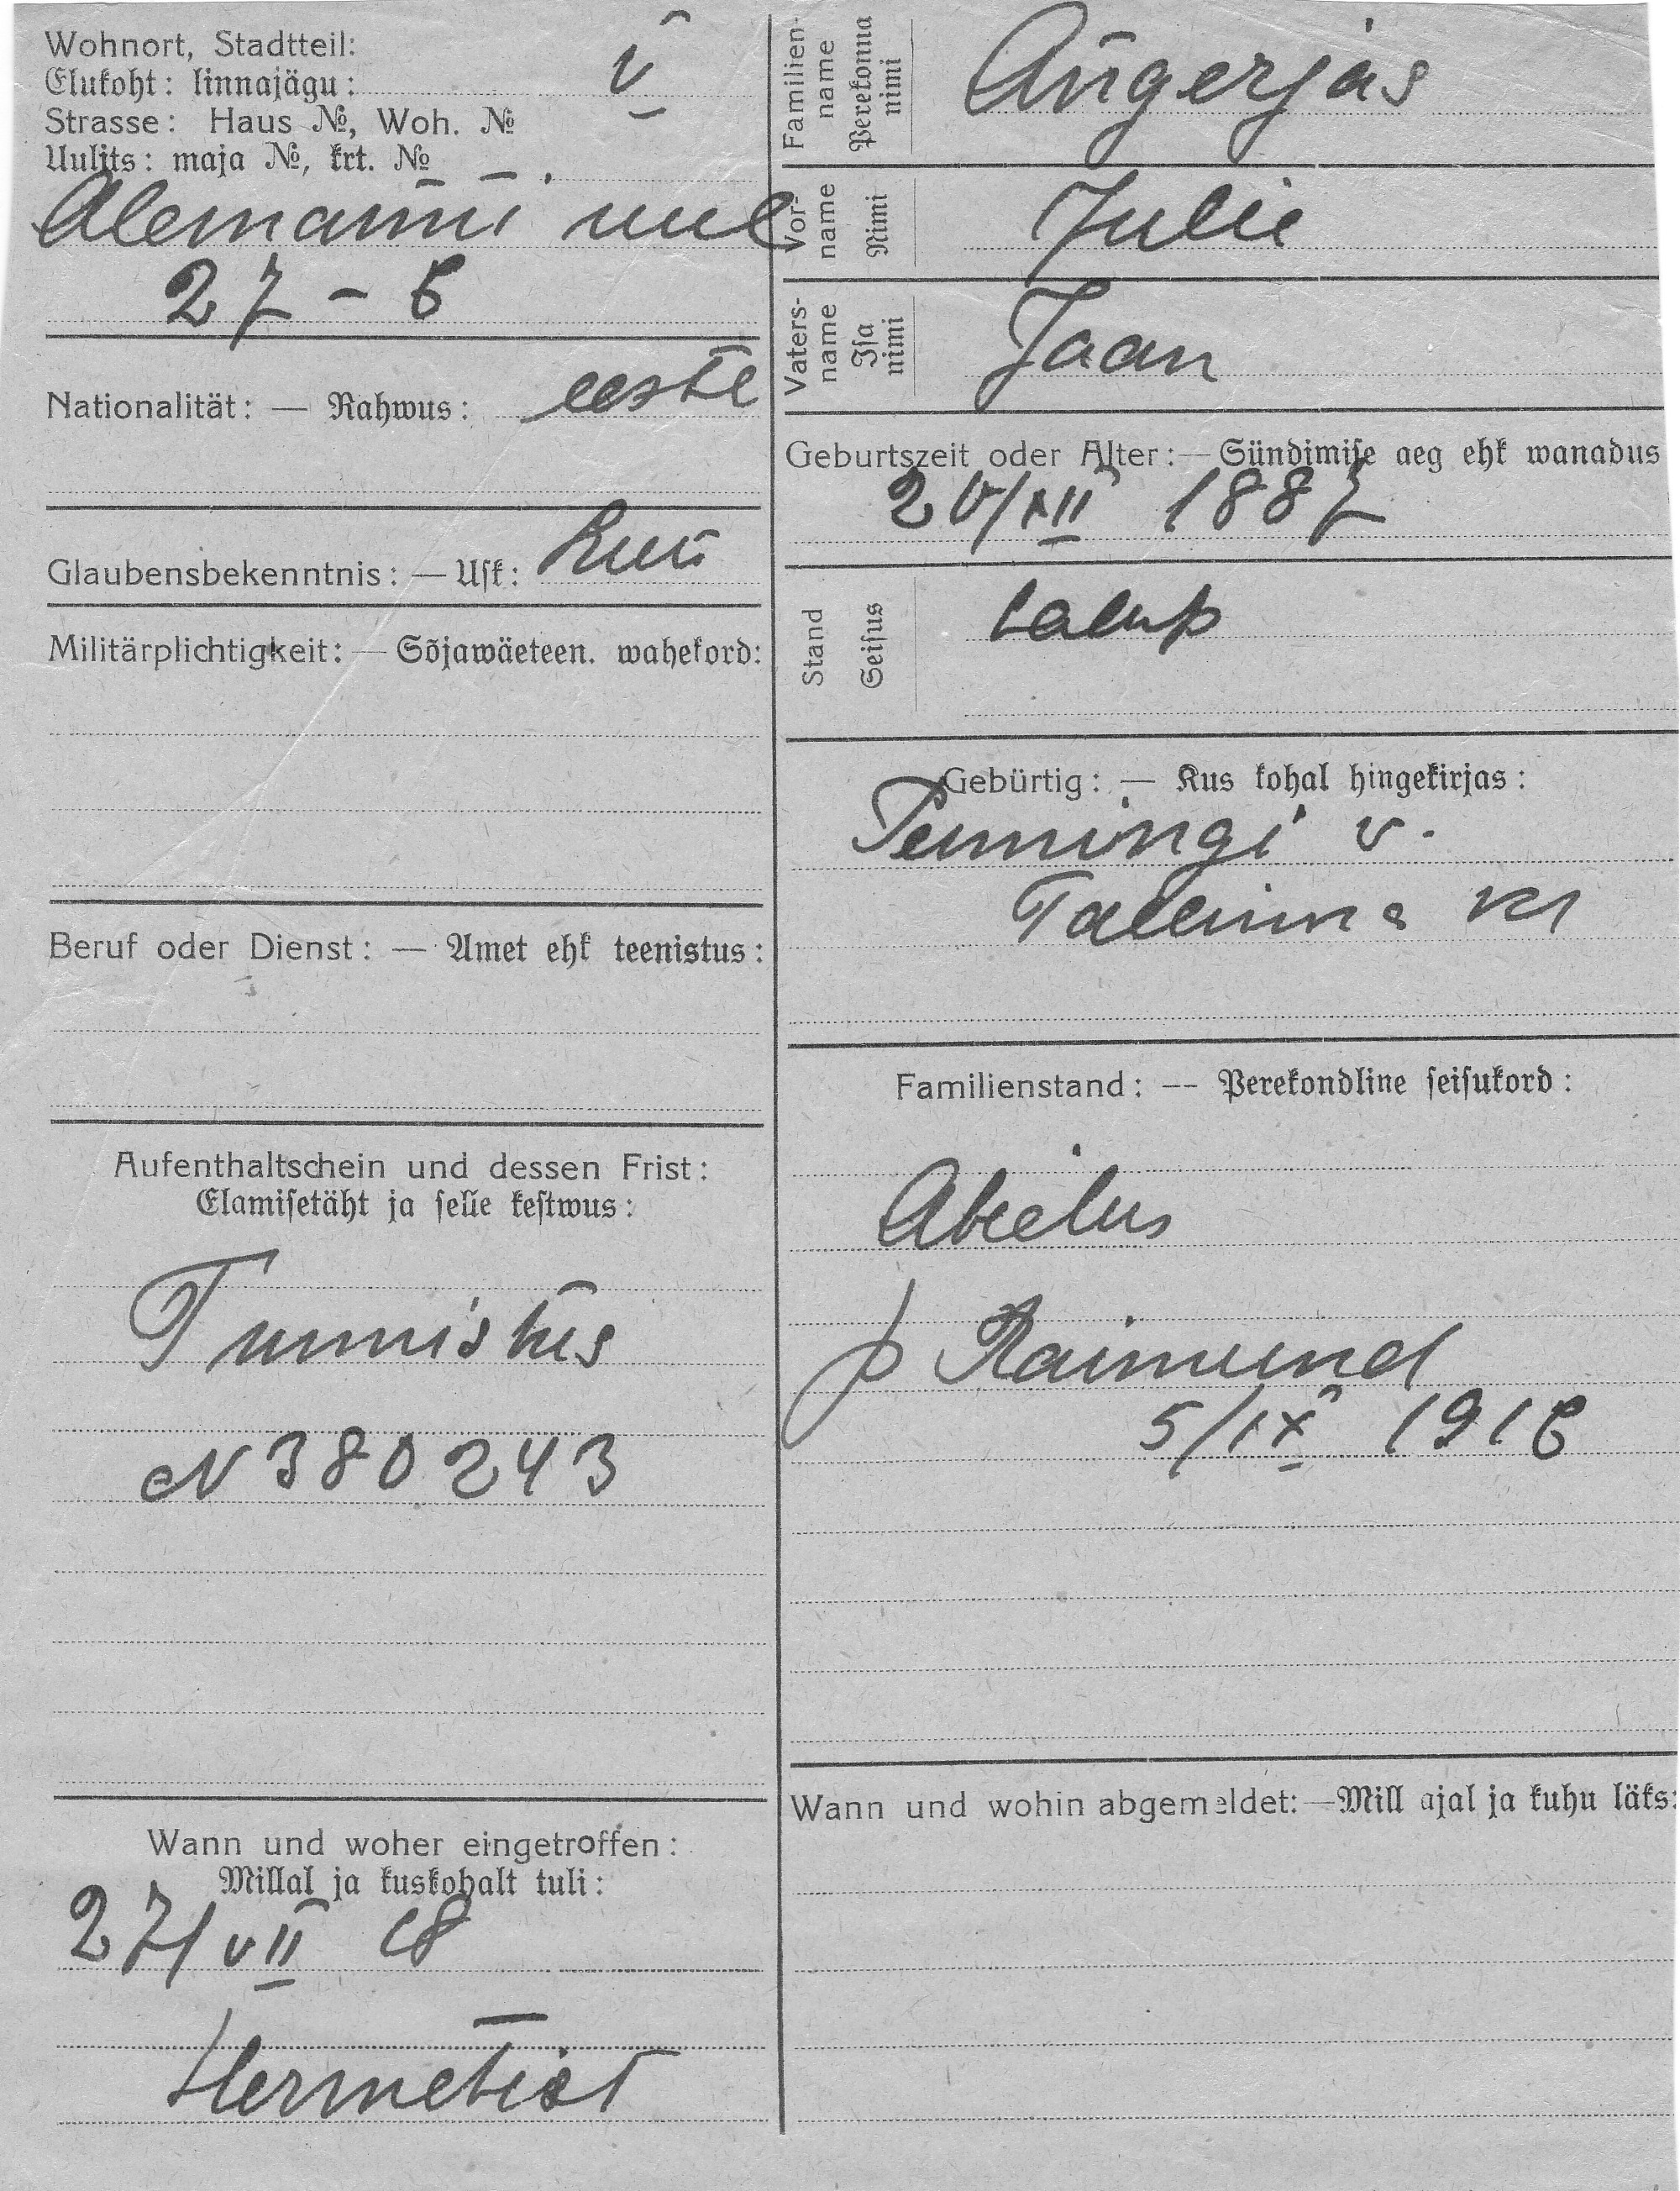 Wohnort, Stadtteil:
Elukoht: linnajägu: V
Strasse: Haus №, Woh. №
Uulits: maja №, krt. №
Alemanni uul
27 – 6
Nationalität: — Rahwus: eesti
Glaubensbekenntnis: — Usk: Luti
Militärplichtigkeit: — Sõjawäeteen. wahekord:
Beruf oder Dienst: — Amet ehk teenistus:
Aufenthaltschein und dessen Frist:
Elamisetäht ja selle kestwus:
Tunnistus
N 380243
Wann und woher eingetroffen:
Millal ja kuskohalt tuli:
27/VII 18
Hermetist
Familien-
name
Perekonna
nimi
Augerjas
Vor-
name
Nimi
Julie
Vaters-
name
Isa
nimi
Jaan
Geburtszeit oder Alter: — Sündimise aeg ehk wanadus
20/XII 1887
Stand
Seisus
talup
Gebürtig: — Kus kohal hingekirjas:
Penningi v.
Tallinna kr
Familienstand: — Perekondline seisukord:
Abielus
p Raimund
5/IX 1916
Wann und wohin abgemeldet: — Mill ajal ja kuhu läks: